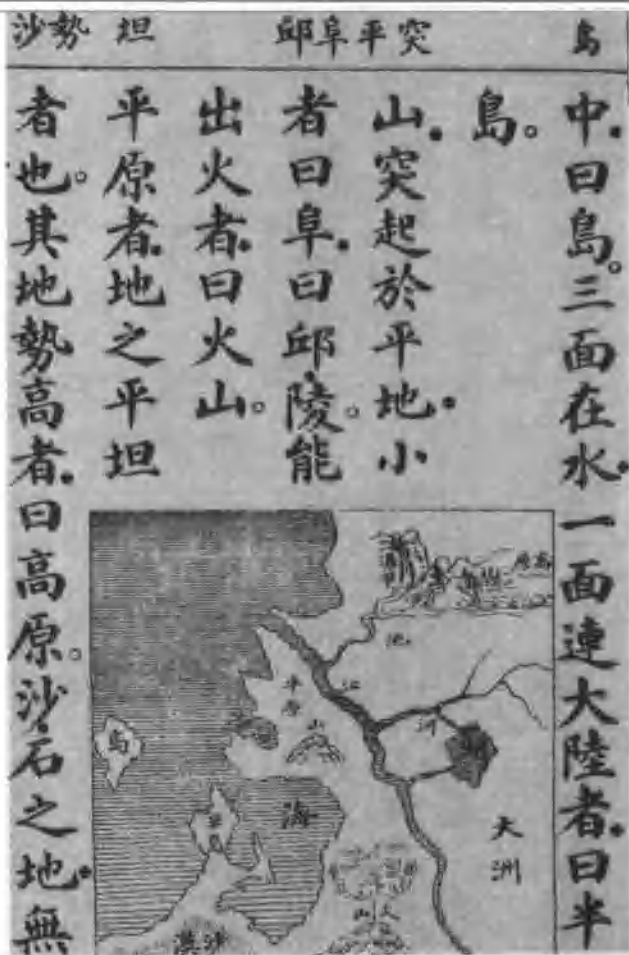 島
突平阜邱
坦
勢沙
中、曰島。三面在水、一面連大陸者、曰半
島。
山、突起於平地、小
者曰阜、曰邱陵。能
出火者、曰火山。
平原者、地之平坦
者也。其地勢高者、曰高原。沙石之地、無
高原
江
平原
山
洲
島
半
海
大洲
火山
沙漠